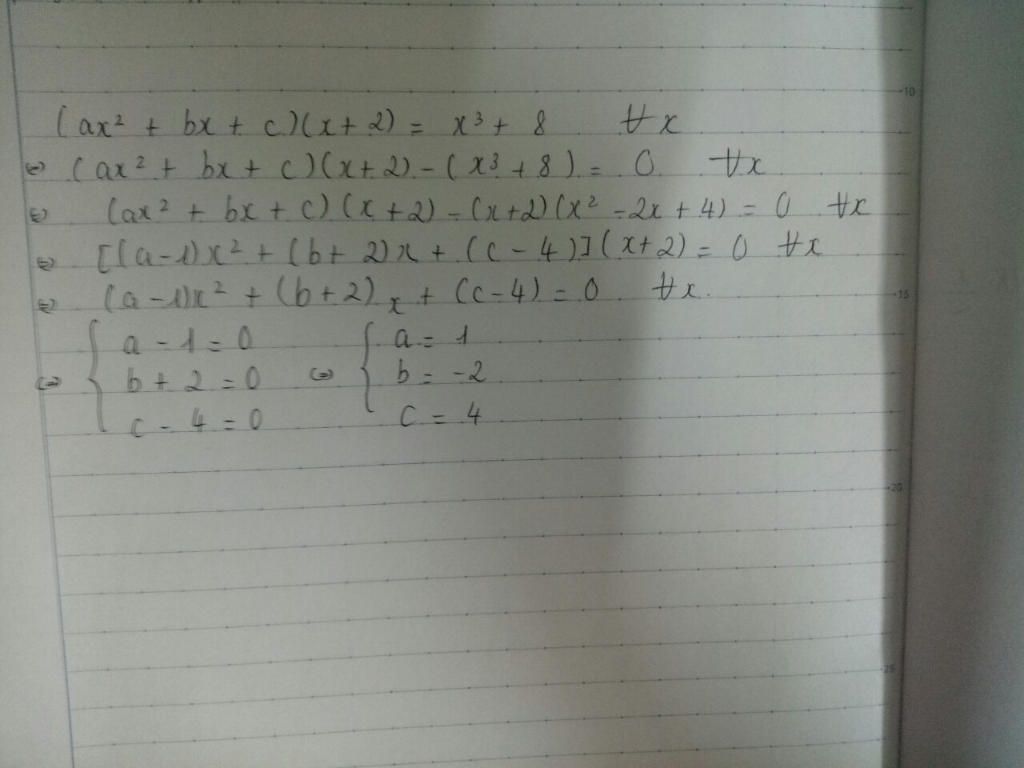 (ax² + bx + c)(x + 2) = x³ + 8 ∀x
⇔ (ax² + bx + c)(x + 2) - (x³ + 8) = 0 ∀x
⇔ (ax² + bx + c)(x + 2) - (x + 2)(x² - 2x + 4) = 0 ∀x
⇔ [(a - 1)x² + (b + 2)x + (c - 4)](x + 2) = 0 ∀x
⇔ (a - 1)x² + (b + 2)x + (c - 4) = 0 ∀x.
⇔ { a - 1 = 0 ⇔ { a = 1
b + 2 = 0 b = -2
c - 4 = 0 c = 4
10
15
20
25